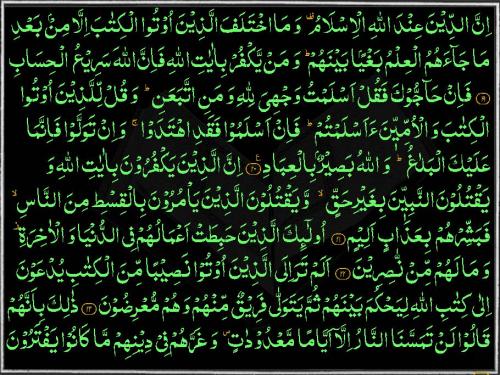 اِنَّ الدِّيْنَ عِنْدَ اللّٰهِ الْاِسْلَامُ ۗ وَمَا اخْتَلَفَ الَّذِيْنَ اُوْتُوا الْكِتٰبَ اِلَّا مِنْۢ بَعْدِ
مَا جَآءَهُمُ الْعِلْمُ بَغْيًۢا بَيْنَهُمْ ؕ وَمَنْ يَّكْفُرْ بِاٰيٰتِ اللّٰهِ فَاِنَّ اللّٰهَ سَرِيْعُ الْحِسَابِ
﴿۱۹﴾ فَاِنْ حَآجُّوْكَ فَقُلْ اَسْلَمْتُ وَجْهِىَ لِلّٰهِ وَمَنِ اتَّبَعَنِ ؕ وَقُلْ لِّلَّذِيْنَ اُوْتُوا
الْكِتٰبَ وَالْاُمِّيّٖنَ ءَاَسْلَمْتُمْ ؕ فَاِنْ اَسْلَمُوْا فَقَدِ اهْتَدَوْا ۚ وَاِنْ تَوَلَّوْا فَاِنَّمَا
عَلَيْكَ الْبَلٰغُ ؕ وَاللّٰهُ بَصِيْرٌۢ بِالْعِبَادِ ﴿۲۰﴾ اِنَّ الَّذِيْنَ يَكْفُرُوْنَ بِاٰيٰتِ اللّٰهِ وَ
يَقْتُلُوْنَ النَّبِيّٖنَ بِغَيْرِ حَقٍّ ۙ وَّيَقْتُلُوْنَ الَّذِيْنَ يَاْمُرُوْنَ بِالْقِسْطِ مِنَ النَّاسِ ۙ
فَبَشِّرْهُمْ بِعَذَابٍ اَلِيْمٍ ﴿۲۱﴾ اُولٰٓٮِٕكَ الَّذِيْنَ حَبِطَتْ اَعْمَالُهُمْ فِى الدُّنْيَا وَالْاٰخِرَةِ
وَمَا لَهُمْ مِّنْ نّٰصِرِيْنَ ﴿۲۲﴾ اَلَمْ تَرَ اِلَى الَّذِيْنَ اُوْتُوْا نَصِيْبًا مِّنَ الْكِتٰبِ يُدْعَوْنَ
اِلٰى كِتٰبِ اللّٰهِ لِيَحْكُمَ بَيْنَهُمْ ثُمَّ يَتَوَلّٰى فَرِيْقٌ مِّنْهُمْ وَهُمْ مُّعْرِضُوْنَ ﴿۲۳﴾ ذٰلِكَ بِاَنَّهُمْ
قَالُوْا لَنْ تَمَسَّنَا النَّارُ اِلَّاۤ اَيَّامًا مَّعْدُوْدٰتٍ ۖ وَغَرَّهُمْ فِىْ دِيْنِهِمْ مَّا كَانُوْا يَفْتَرُوْنَ